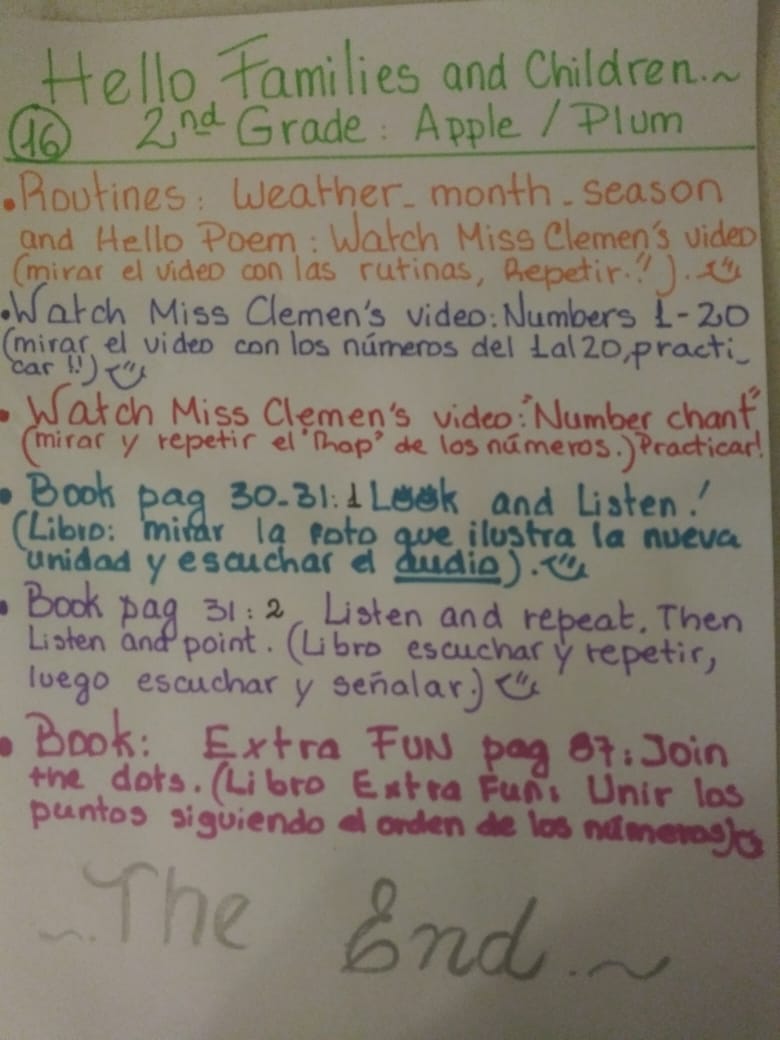 Hello Families and Children.~
16 2nd Grade: Apple / Plum
• Routines: Weather - month - season
and Hello Poem: Watch Miss Clemen's video
(mirar el video con las rutinas, Repetir.!!).
• Watch Miss Clemen's video: Numbers 1-20
(mirar el video con los números del 1 al 20, practi-
car !!)
• Watch Miss Clemen's video: "Number chant"
(mirar y repetir el de los números.) Practicar!
• Book pag 30-31: 1 Look and Listen!
(Libro: mirar la foto que ilustra la nueva
unidad y escuchar el audio).
• Book pag 31: 2 Listen and repeat. Then
Listen and point. (Libro escuchar y repetir,
luego escuchar y señalar.)
• Book: Extra FUN pag 87: Join
the dots. (Libro Extra Fun: Unir los
puntos siguiendo el orden de los números)
~.The End.~